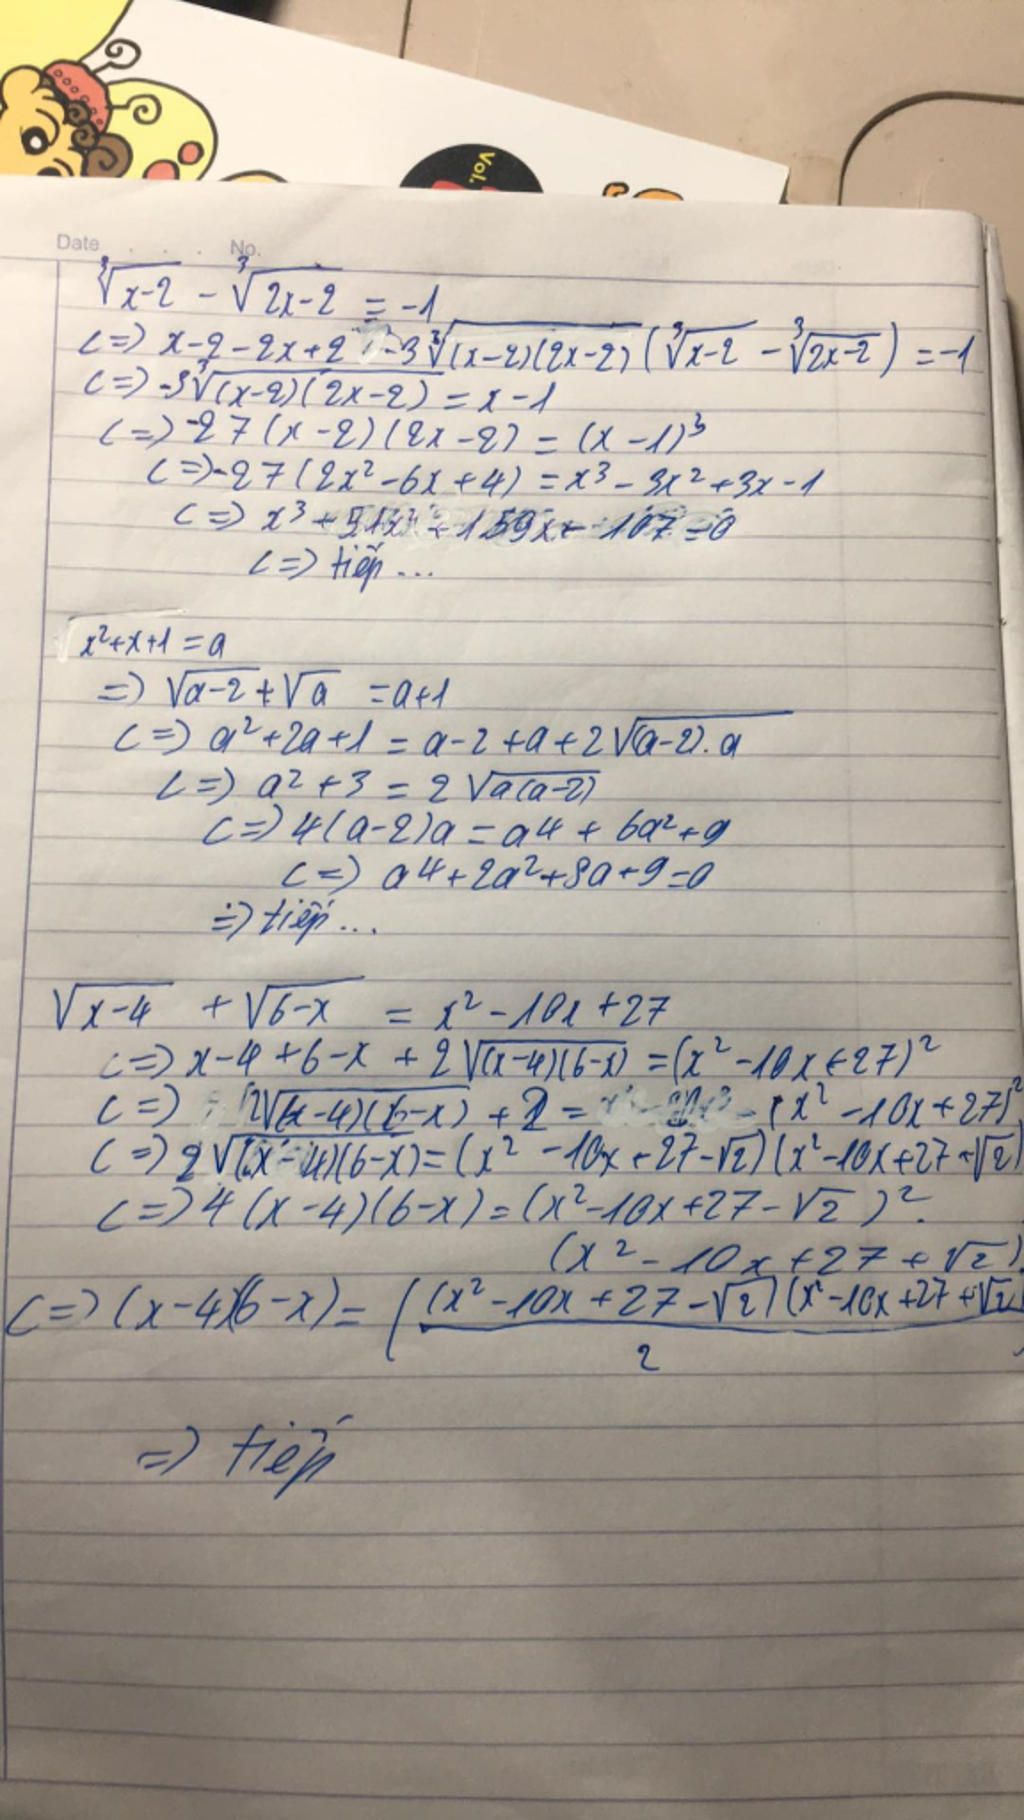 Vol.
Date . . . . No.
∛(x-2) - ∛(2x-2) = -1
<=> x-2-2x+2 -3∛((x-2)(2x-2)) (∛(x-2) - ∛(2x-2)) = -1
<=> -3∛((x-2)(2x-2)) = x-1
<=> -27(x-2)(2x-2) = (x-1)³
<=> -27(2x²-6x+4) = x³-3x²+3x-1
<=> x³ + 51x² - 159x + 107 = 0
<=> tiếp...
x²+x+1 = a
=> √(a-2) + √a = a+1
<=> a²+2a+1 = a-2+a+2√((a-2).a)
<=> a²+3 = 2√(a(a-2))
<=> 4(a-2)a = a4 + 6a²+9
<=> a4+2a²+8a+9=0
=> tiếp...
√(x-4) + √(6-x) = x²-10x+27
<=> x-4+6-x + 2√((x-4)(6-x)) = (x²-10x+27)²
<=> 2√((x-4)(6-x)) + 2 = (x²-10x+27)²
<=> 2√((x-4)(6-x)) = (x²-10x+27-√2)(x²-10x+27+√2)
<=> 4(x-4)(6-x) = (x²-10x+27-√2)².
(x²-10x+27+√2)
<=> (x-4)(6-x) = ((x²-10x+27-√2)(x²-10x+27+√2)
2
=> tiếp